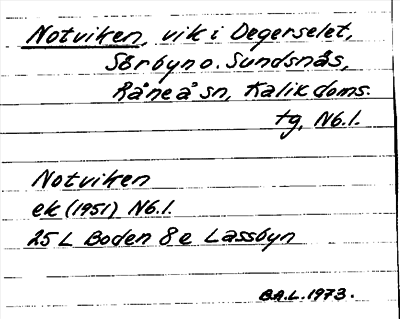 Notviken, vik i Degerselet,
Sörbyn o. Sundsnås,
Råneå sn, Kalix doms.
tg, Nb.l.
Notviken
ek (1951) Nb.l.
25 L Boden 8 e Lassbyn
B.A.L. 1973.